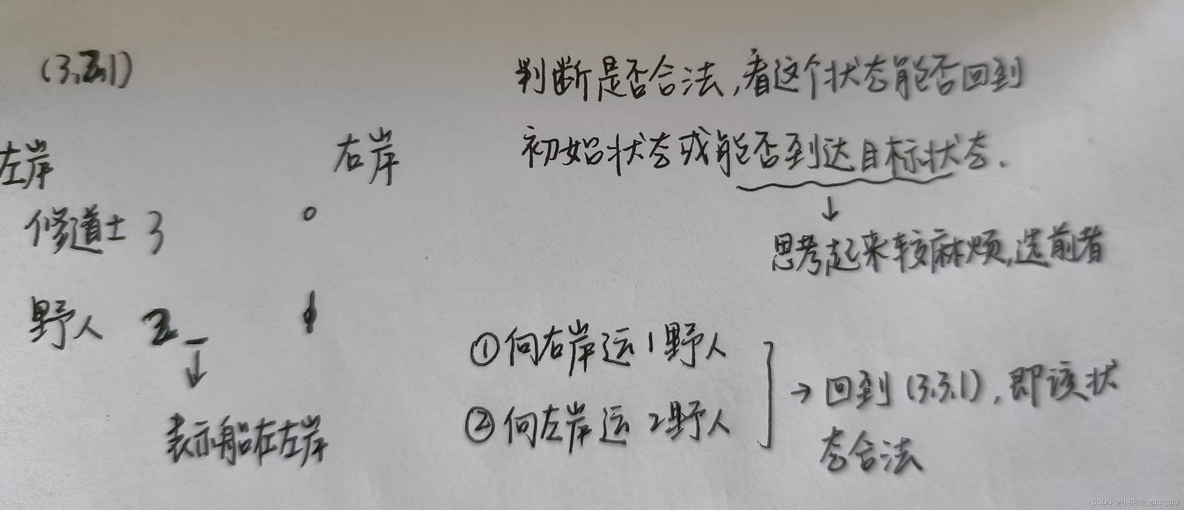 (3,2,1)
判断是否合法,看这个状态能否回到
初始状态或能否到达目标状态.
左岸 右岸
修道士 3 0
↓
思考起来较麻烦,选前者
野人 2 _ 1
↓
表示船在左岸
①向右岸运1野人
②向左岸运2野人
→回到(3.3.1),即该状
态合法